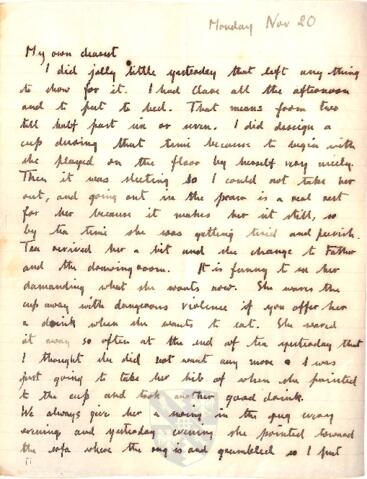 Monday Nov 20
My own dearest
I did jolly little yesterday that left any thing
to show for it. I had Clare all the afternoon
and to put to bed. That means from two
till half past six or seven. I did design a
cup during that time because to begin with
she played on the floor by herself very nicely.
Then it was sleeting so I could not take her
out, and going out in the pram is a real rest
for her because it makes her sit still, so
by tea time she was getting tired and peevish.
Tea revived her a bit and the change to Father
and the drawing room. It is funny to see her
demanding what she wants now. She waves the
cup away with dangerous violence if you offer her
a drink when she wants to eat. She waved
it away so often at the end of tea yesterday that
I thought she did not want any more & I was
just going to take her bib of when she pointed
to the cup and took another good drink.
We always give her a swing in the rug every
evening and yesterday evening she pointed toward
the sofa where the rug is and grumbled so I put